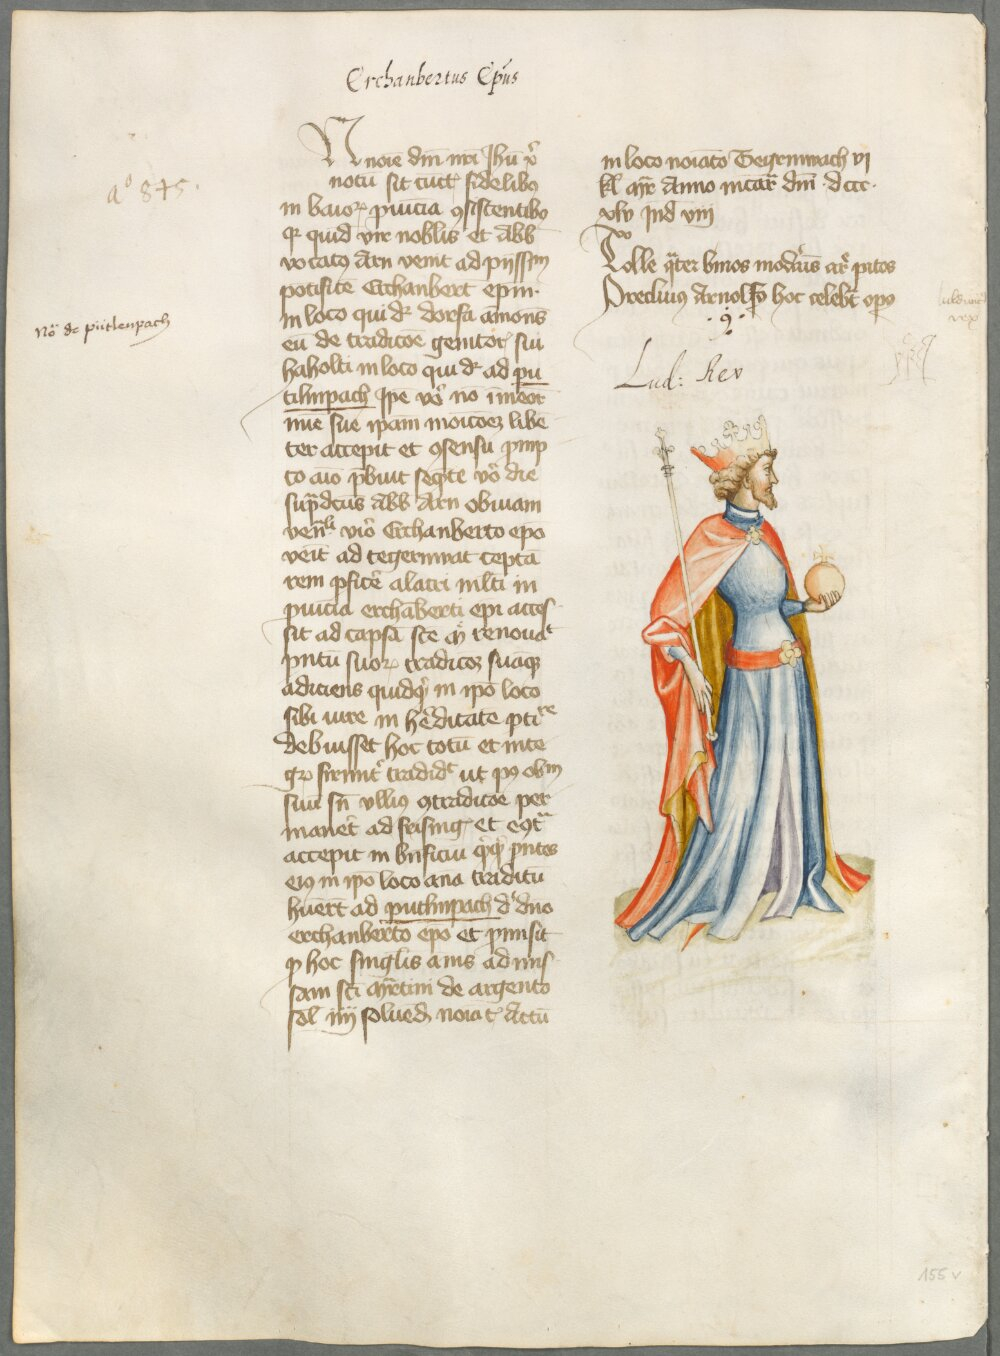 Erchanbertus Ep̄us
aº 845.
Nō de pütlenpach
N noīe dm̄ nr̄i Jhū x̄
notū sit cūct̄ fidelibꝯ
in baioꝝ ꝓuīcia ꝯsistentibꝯ
qꝛ quid vir nobĺis et abb
vocatꝯ Arn venit ad pijssim̄
potisitē Erchanbert ep̄m.
In loco qui dꝛ dorfa amons̄
eū de tradicōe genitoꝛ sui
haholti in loco qui dꝛ ad pu
tilinpach Ipē v̊o nō īmeōr
mie sue ip̄am moicōeꝫ libē
ter accepit et ꝯsensu ꝓmp
to aīo ꝓbuit septē v̊o die
sup̄dc̄us Abb Arn obuiam
ven̄li viro Erchanberto ep̄o
veīt ad tegerinwac ceptā
rem ꝑficē alacri ml̄ti in
ꝓuīcia erchāberti ep̄i acces
sit ad capsā sc̄e M̄ renouat
pn̄tū suoꝝ tradicōꝫ suāqꝫ
adiciens quidqͥ in ip̄o loco
sibi iure in hēditatē ꝑtiʳᵉ
debuisset hoc totū et inte
gꝝ firmit̄ tradidᵗ ut pꝯ obm̄
suū sn̄ vllīꝯ ꝯtradicōe per
manet̄ ad frising et eꝯtᵃ
accepit in bn̄ficiū qͥqͥ pn̄tes
eiꝯ in ip̄o loco ana traditū
huēr̄t ad putlinpach dᵗ dn̄o
erchanberto ep̄o et ꝓmisit
ꝓ hoc singĺis a nīs ad mis
sam sc̄i Mr̄tini de argento
sol iiij soluēd̄ noīat Actū
in loco noīato Tegerinwach vi
kĺ apr̄ Anno incar̄ dm̄ dccc.
xlv Ind viii
Tolle qͣter binos modᵒus cr̄ pītos
Preclūiꝯ Arnolf9 hoc celebᵗ opꝯ
.ꝯ.
Lud: Rex
ludwic9
rex
155 v